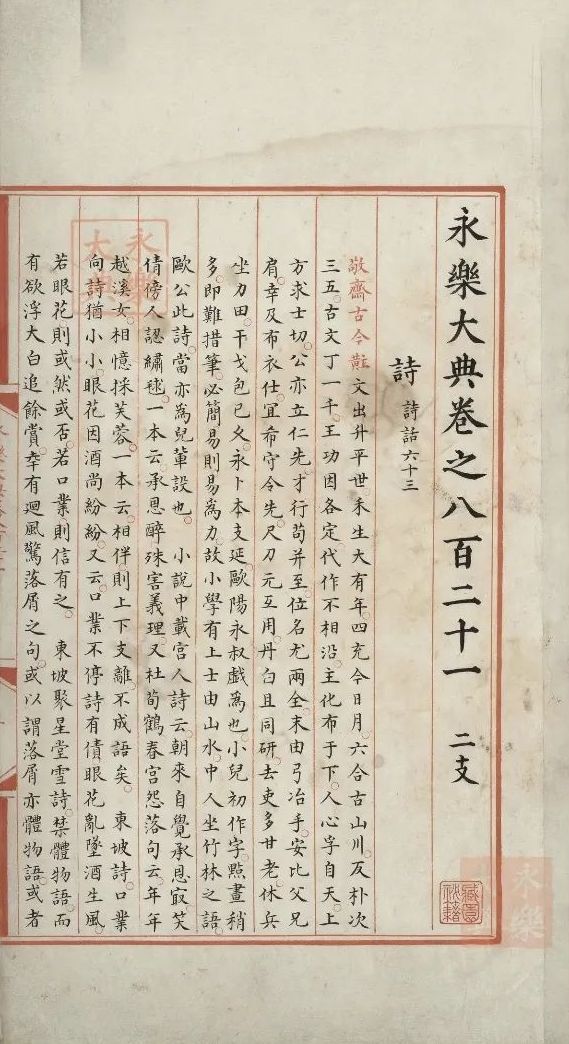 永樂大典卷之八百二十一 二支
詩 詩話六十三
敬齋古今黈 文出升平世。禾生大有年。四充今日月。六合古山川。反朴次
三五。古文丁一千。王功因各定。代作不相沿。主化布于下。人心孚自天。上
方求士切。公亦立仁先。才行苟并至。位名尤兩全。末由弓冶手。安比父兄
肩。幸及布衣仕。冝希守令先。尺刀元互用。丹白且同研。去吏多廿老。休兵
坐力田。干戈包已久。永卜本支延。歐陽永叔戲為也。小兒初作字。點畫稍
多。即難措筆。必簡易則易為力。故小學有上士由山水。中人坐竹林之語。
歐公此詩。當亦為兒軰設也。 小說中載宫人詩云。朝來自覺承恩㝡。笑
倩傍人認繡毬。一本云。承恩醉。殊害義理。又杜荀鶴春宫怨落句云。年年
越溪女。相憶採芙蓉。一本云。相伴則上下支離。不成語矣。 東坡詩。口業
向詩猶小小。眼花因酒尚紛紛。又云。口業不停詩有債。眼花亂墜酒生風。
若眼花則或然或否。若口業則信有之。 東坡聚星堂雪詩。禁體物語。而
有欲浮大白追餘賞。幸有廻風驚落屑之句。或以謂落屑亦體物語。或者
永樂大典
藏園秘籍
永樂